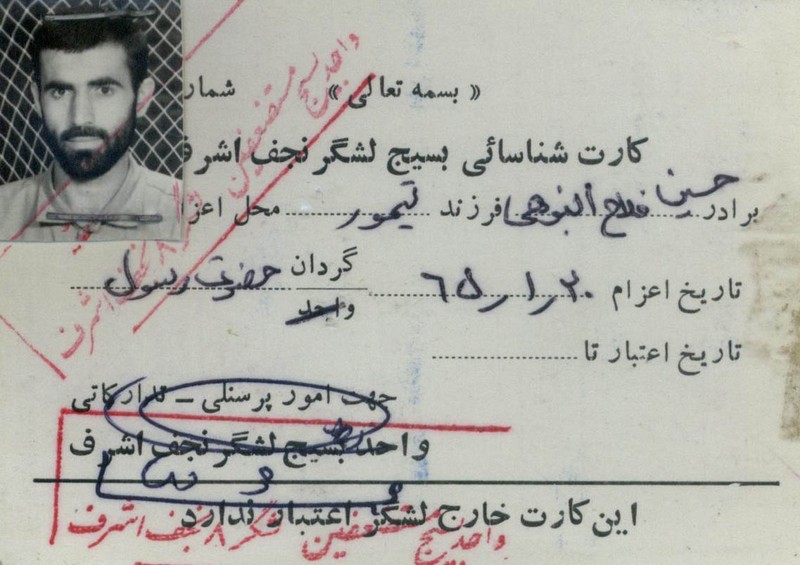 « بسمه تعالی » شمار
کارت شناسائی بسیج لشگر نجف اشرف
برادر حسین فلاح فرزند تیمور محل اعز
تاریخ اعزام ۳۰ر۱ر۶۵ گردان حضرت رسول
واحد
تاریخ اعتبار تا
جهت امور پرسنلی ــ تدارکاتی
واحد بسیج لشگر نجف اشرف
این کارت خارج لشگر اعتبار ندارد
واحد بسیج مستضعفین لشگر ۸ نجف اشرف
واحد بسیج مستضعفین لشگر ۸ نجف اشرف